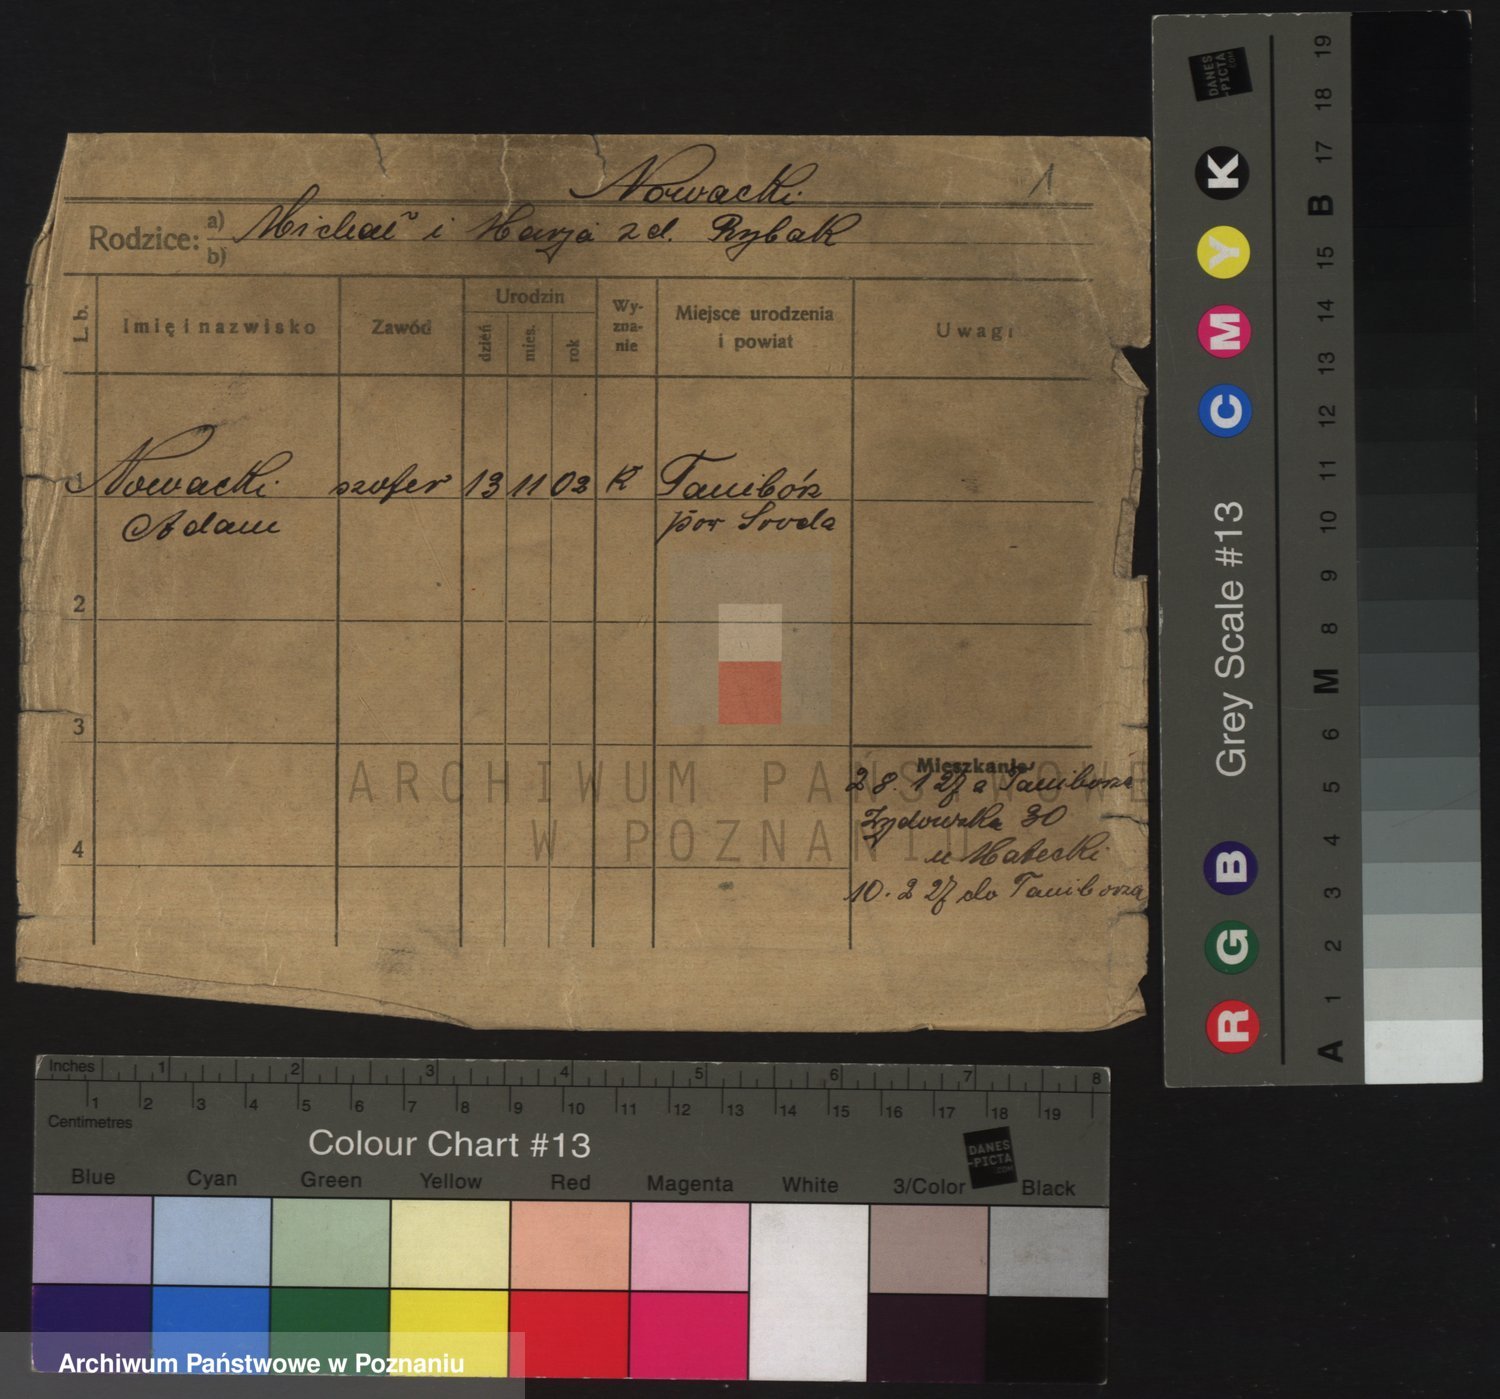 Nowacki
1
Rodzice: a) Michał i Marja zd. Rybak
b)
L. b.
Imię i nazwisko
Zawód
Urodzin
dzień
mies.
rok
Wy-
zna-
nie
Miejsce urodzenia
i powiat
Uwagi
1 Nowacki szofer 13 11 02 K Tanibórz
Adam pow Sroda
2
3
4
Mieszkanie
28. 1 27 a Taniborza
Żydowska 30
u Małecki
10. 2 27 do Taniborza
ARCHIWUM PAŃSTWOWE
W POZNANIU
Inches 1 2 3 4 5 6 7 8
1 2 3 4 5 6 7 8 9 10 11 12 13 14 15 16 17 18 19
Centimetres
Colour Chart #13
DANES
-PICTA
.COM
Blue Cyan Green Yellow Red Magenta White 3/Color Black
Archiwum Państwowe w Poznaniu
DANES
-PICTA
.COM
R G B Grey Scale #13 C M Y K
A 1 2 3 4 5 6 M 8 9 10 11 12 13 14 15 B 17 18 19